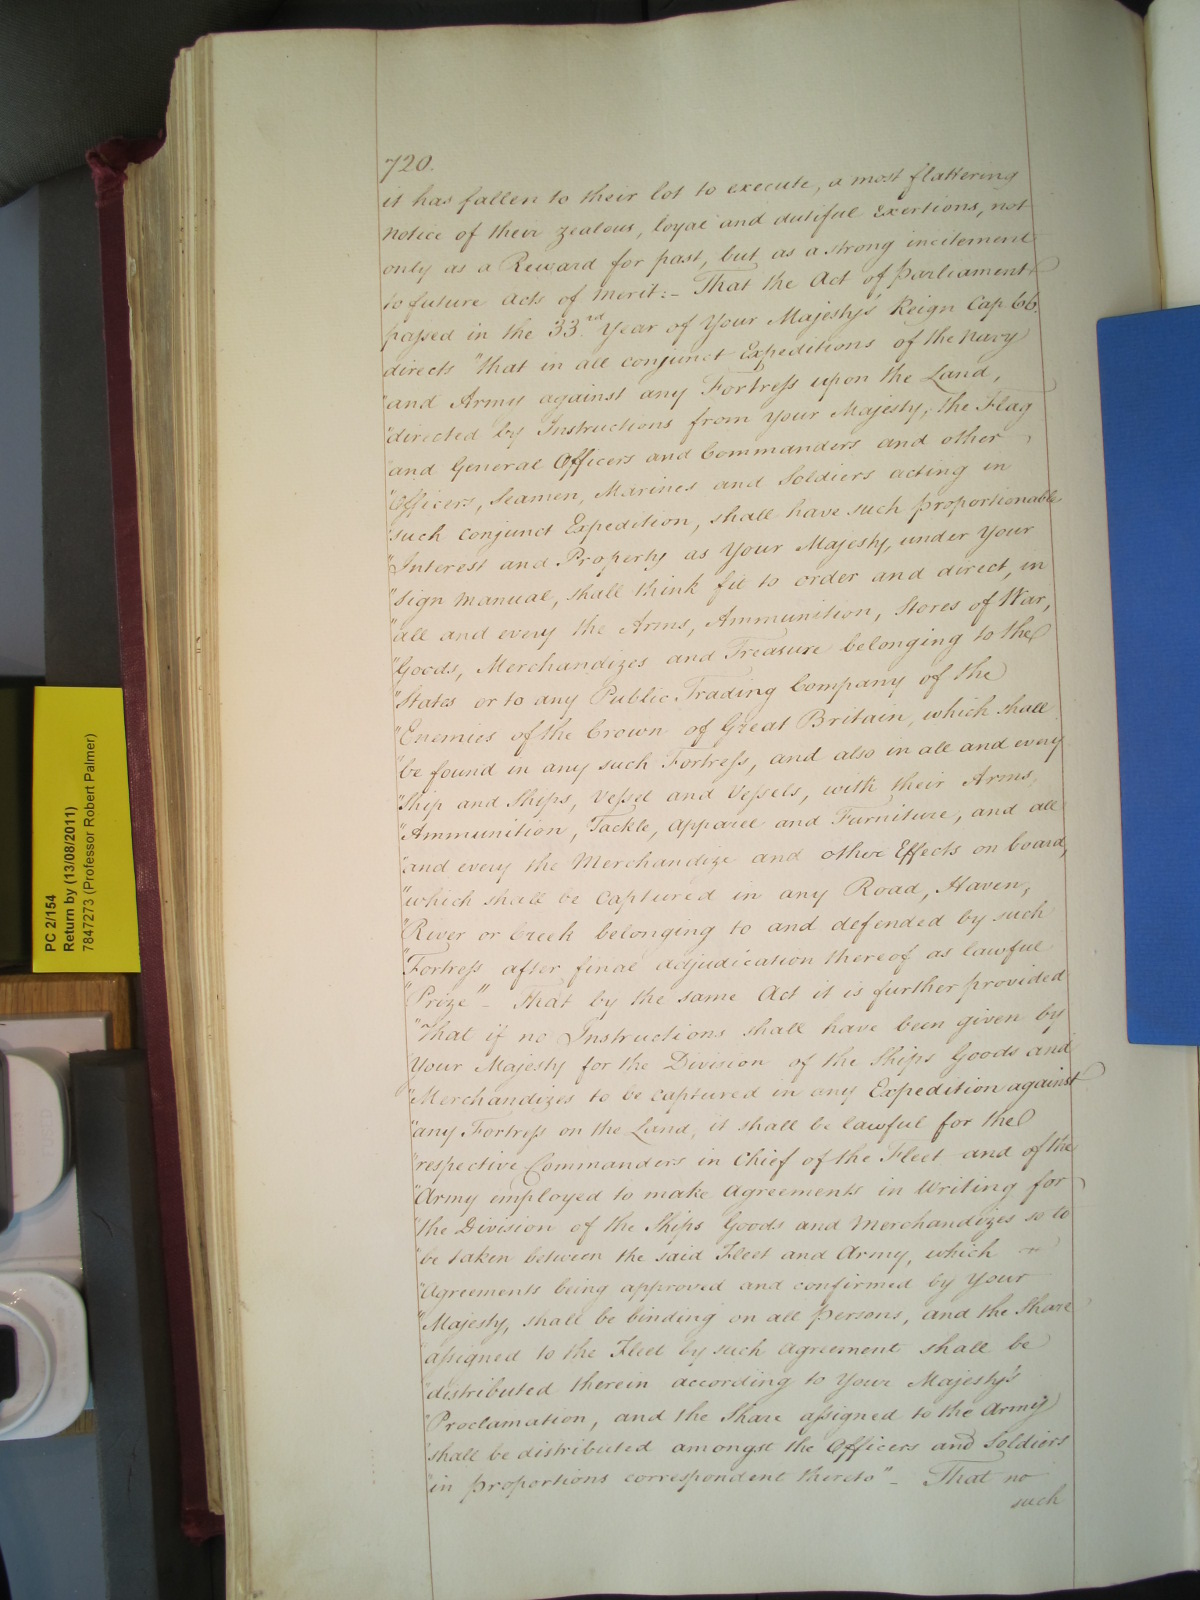 720.
it has fallen to their lot to execute, a most flattering
notice of their zealous, loyal and dutiful Exertions, not
only as a Reward for past, but as a strong incitement
to future Acts of Merit:- That the Act of Parliament
passed in the 33.rd Year of Your Majesty's Reign Cap 66.
directs "that in all conjunct Expeditions of the Navy
"and Army against any Fortress upon the Land,
"directed by Instructions from Your Majesty, the Flag
"and General Officers and Commanders and other
"Officers, Seamen, Marines and Soldiers acting in
"such conjunct Expedition, shall have such proportionable
"Interest and Property as Your Majesty, under Your
"Sign Manual, shall think fit to order and direct, in
"all and every the Arms, Ammunition, Stores of War,
"Goods, Merchandizes and Treasure belonging to the
"States or to any Public Trading Company of the
"Enemies of the Crown of Great Britain, which shall
"be found in any such Fortress, and also in all and every
"Ship and Ships, Vessel and Vessels, with their Arms,
"Ammunition, Tackle, Apparel and Furniture, and all
"and every the Merchandize and other Effects on board,
"which shall be Captured in any Road, Haven,
"River or Creek belonging to and defended by such
"Fortress after final adjudication thereof as lawful
"Prize"- That by the same Act it is further provided
"That if no Instructions shall have been given by
Your Majesty for the Division of the Ships Goods and
"Merchandizes to be captured in any Expedition against
"any Fortress on the Land, it shall be lawful for the
"respective Commanders in Chief of the Fleet and of the
"Army employed to make Agreements in Writing for
"the Division of the Ships Goods and Merchandizes so to
"be taken between the said Fleet and Army, which
"Agreements being approved and confirmed by Your
"Majesty, shall be binding on all Persons, and the Share
"assigned to the Fleet by such Agreement shall be
"distributed therein according to Your Majesty's
"Proclamation, and the Share assigned to the Army
"shall be distributed amongst the Officers and Soldiers
"in proportions correspondent thereto"- That no
such
PC 2/154
Return by (13/08/2011)
7847273 (Professor Robert Palmer)